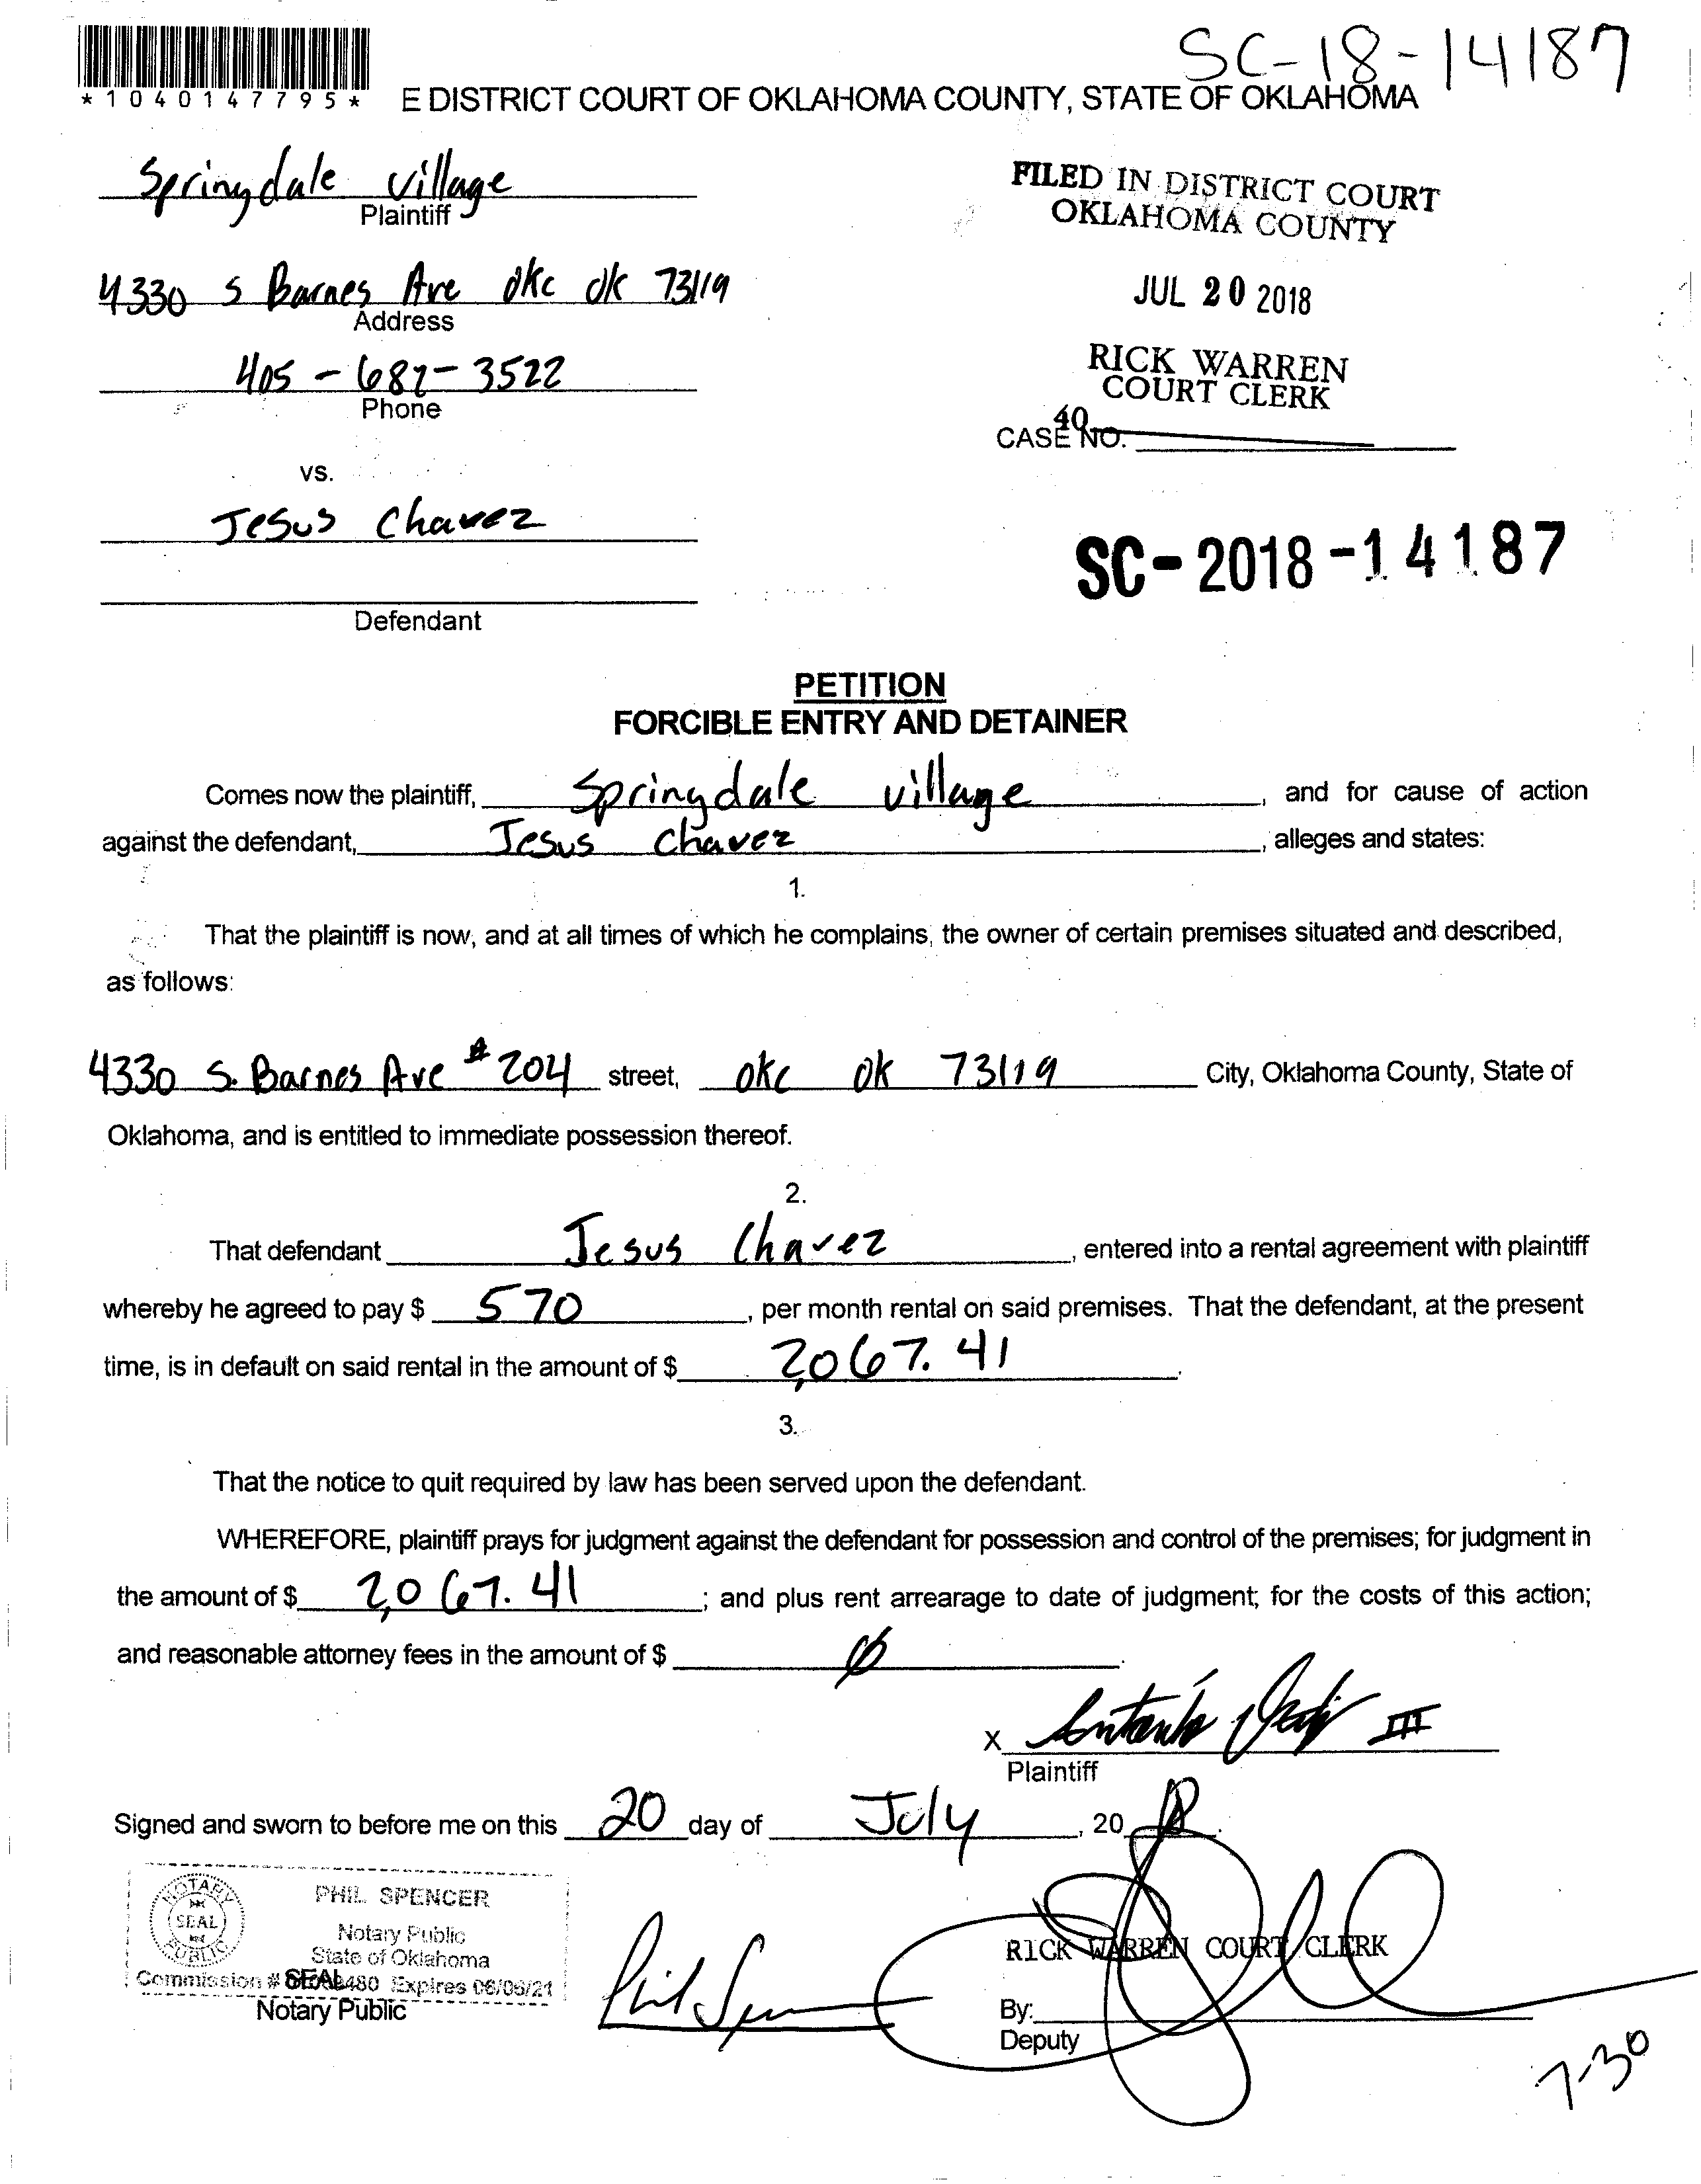 SC-18-14187
*1040147795*
E DISTRICT COURT OF OKLAHOMA COUNTY, STATE OF OKLAHOMA
Springdale Village
Plaintiff
FILED IN DISTRICT COURT
OKLAHOMA COUNTY
4330 S Barnes Ave OKC OK 73119
Address
JUL 20 2018
405-682-3522
Phone
RICK WARREN
COURT CLERK
40
CASE NO.
vs.
Jesus Chavez
SC-2018-14187
Defendant
PETITION
FORCIBLE ENTRY AND DETAINER
Comes now the plaintiff, Springdale Village, and for cause of action
against the defendant, Jesus Chavez, alleges and states:
1.
That the plaintiff is now, and at all times of which he complains, the owner of certain premises situated and described,
as follows:
4330 S. Barnes Ave #204 street, OKC OK 73119 City, Oklahoma County, State of
Oklahoma, and is entitled to immediate possession thereof.
2.
That defendant Jesus Chavez, entered into a rental agreement with plaintiff
whereby he agreed to pay $ 570, per month rental on said premises. That the defendant, at the present
time, is in default on said rental in the amount of $ 2,067.41.
3.
That the notice to quit required by law has been served upon the defendant.
WHEREFORE, plaintiff prays for judgment against the defendant for possession and control of the premises; for judgment in
the amount of $ 2,067.41; and plus rent arrearage to date of judgment; for the costs of this action;
and reasonable attorney fees in the amount of $ 0.
X III
Plaintiff
Signed and sworn to before me on this 20 day of July, 2018.
NOTARY PUBLIC SEAL
PHIL SPENCER
Notary Public
State of Oklahoma
Commission # 480 Expires 06/06/21
SEAL
Notary Public
Phil Spencer
RICK WARREN COURT CLERK
By:
Deputy
7-30